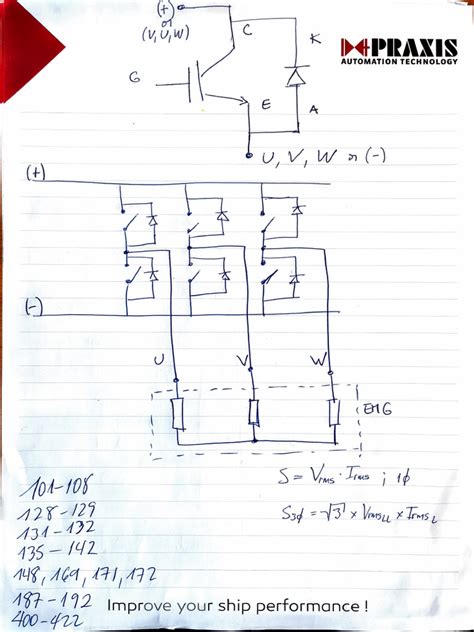 (+)
or
(V,U,W)
C
K
PRAXIS
AUTOMATION TECHNOLOGY
G
E
A
U, V, W or (-)
(+)
(-)
U
V
W
S = Vrms · Irms ; 1ϕ
S3ϕ = √3 × VrmsLL × IrmsL
101-108
128-129
131-132
135-142
148, 169, 171, 172
187-192
400-422
Improve your ship performance!